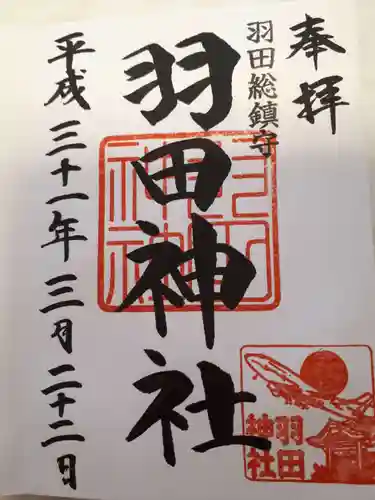 奉拝
羽田総鎮守
羽田神社
平成三十一年三月二十二日
羽田神社
羽田
神社